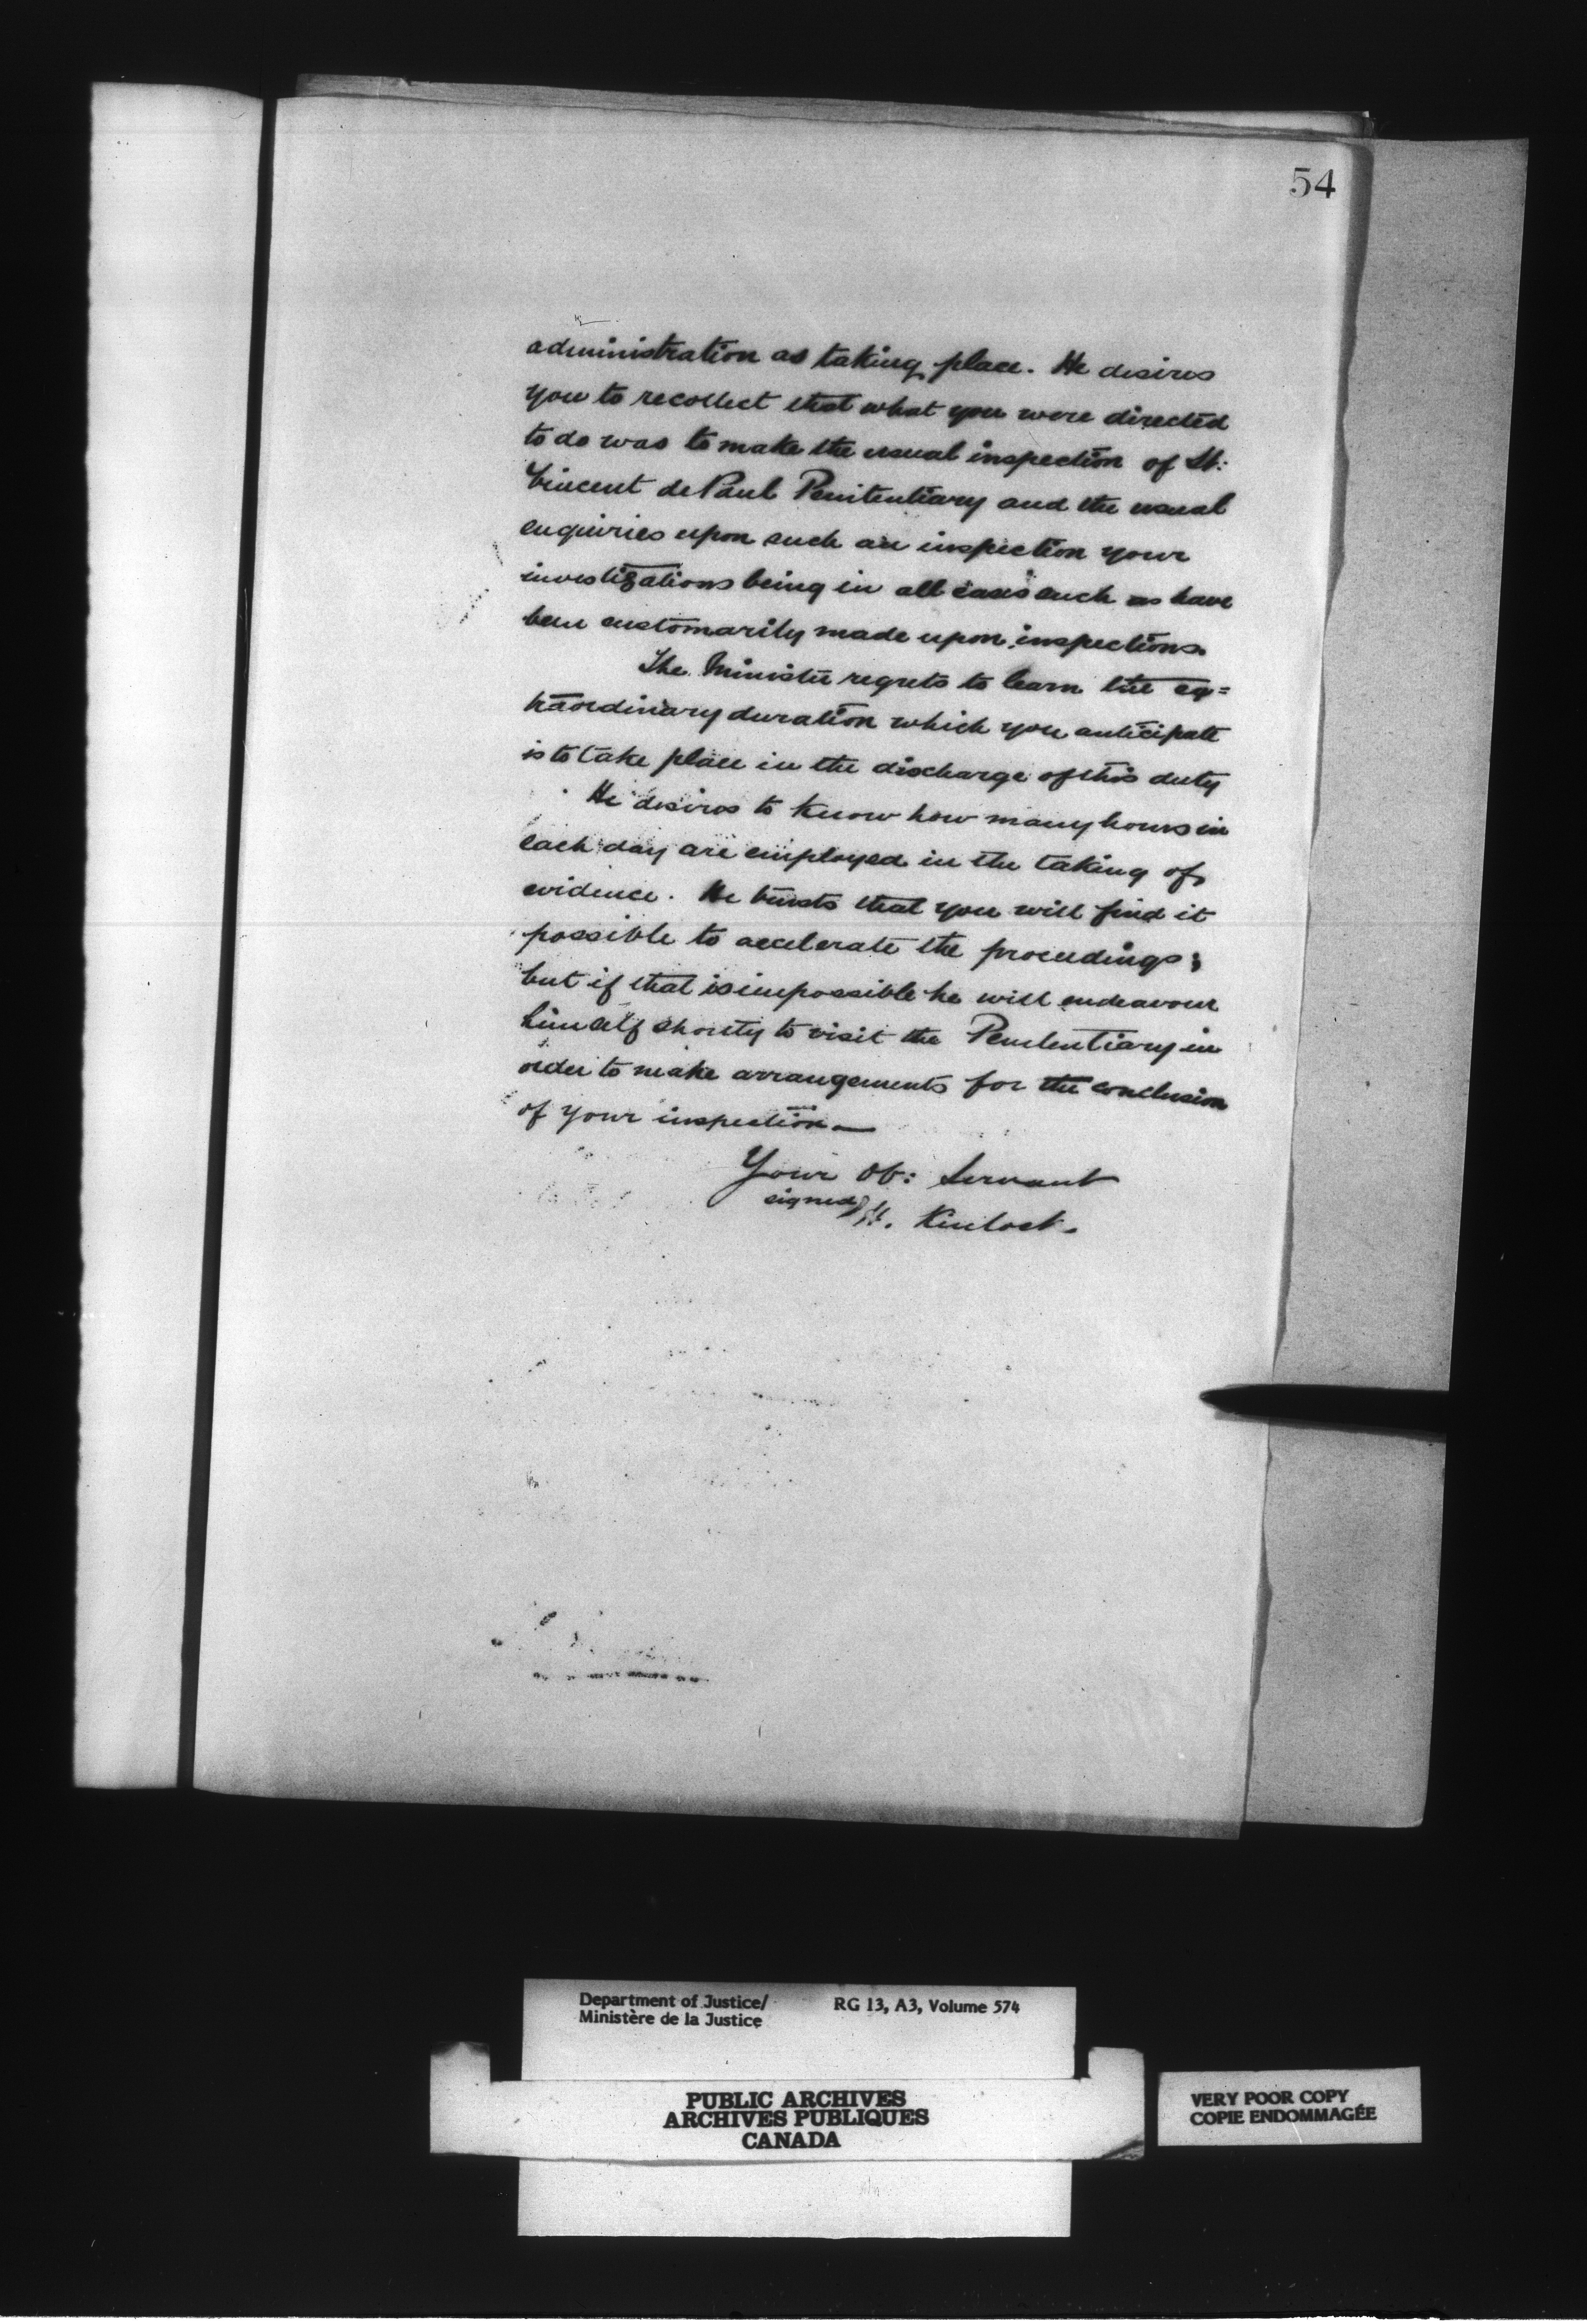 54
administration as taking place. He desires
you to recollect that what you were directed
to do was to make the usual inspection of St:
Vincent de Paul Penitentiary and the usual
enquiries upon such an inspection your
investigations being in all cases such as have
been customarily made upon inspections.
The Minister regrets to learn the ex=
traordinary duration which you anticipate
is to take place in the discharge of this duty
He desires to know how many hours in
each day are employed in the taking of
evidence. He trusts that you will find it
possible to accelerate the proceedings;
but if that is impossible he will endeavour
himself shortly to visit the Penitentiary in
order to make arrangements for the conclusion
of your inspection—
Your Ob: Servant
signed H. Kinlock.
Department of Justice/ RG 13, A3, Volume 574
Ministère de la Justice
PUBLIC ARCHIVES
ARCHIVES PUBLIQUES
CANADA
VERY POOR COPY
COPIE ENDOMMAGÉE